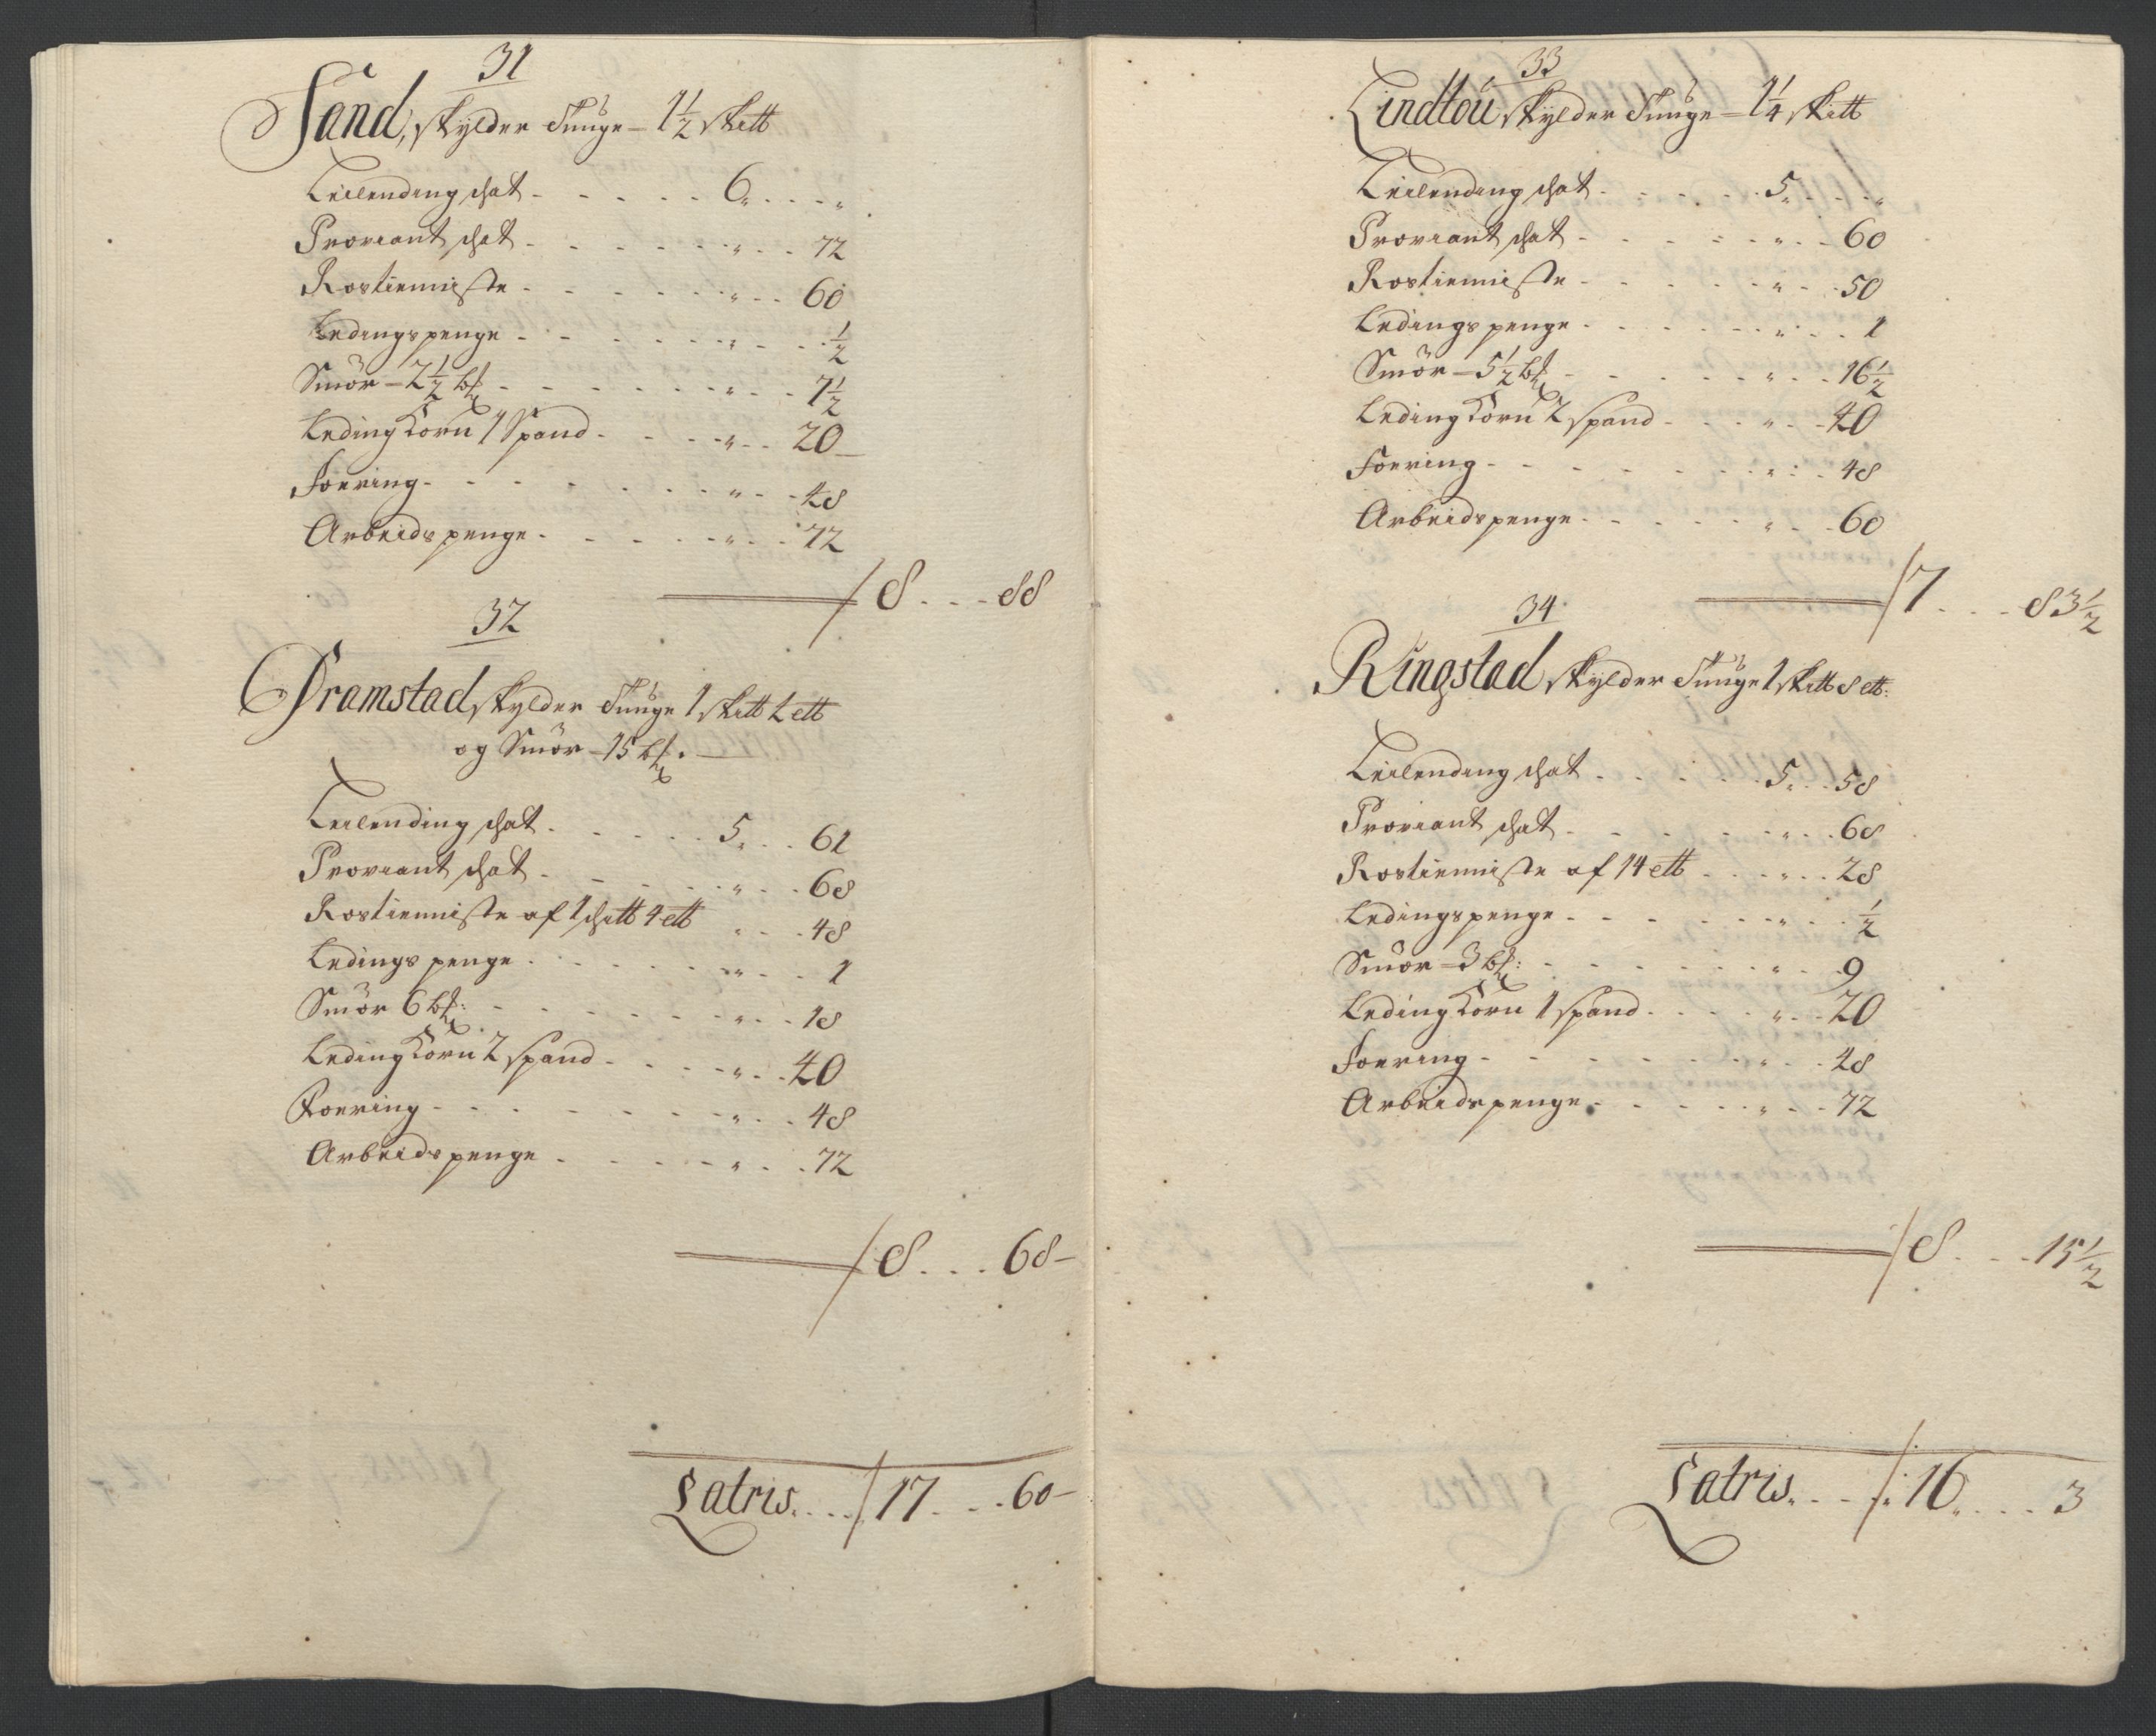 31
Sand, skylder Tunge - 1 1/2 skett
Leilending schat - - - - - 6 " - - - "
Proviant schat - - - - - " - - 72
Rostienniste - - - - - " - - 60
Ledingspenge - - - - - " - - 1/2
Smör - 2 1/2 bß - - - - - " - - 7 1/2
Leding Korn 1 Spand - - - " - - 20
Foering - - - - - " - - 48
Arbeidspenge - - - - - " - - 72
8 - - - 88
32
Dramstad skylder Tunge 1 skett 2 ett
og Smör - 15 bß
Leilending schat - - - - 5 " - - 61
Proviant schat - - - - - " - - 68
Rostienniste af 1 schett 4 ett " - - 48
Ledings penge - - - - - " - - 1
Smör 6 bß: - - - - - " - - 18
Leding Korn 2 spand - - - " - - 40
Foering - - - - - " - - 48
Arbeidspenge - - - - - " - - 72
8 - - - 68
Latris - - - 17 - - - 60
33
Lindtou skylder Tunge - 1 1/4 skett
Leilending schat - - - - - 5 " - - - "
Proviant schat - - - - - " - - 60
Rostienniste - - - - - " - - 50
Ledings penge - - - - - " - - 1
Smör - 5 1/2 bß - - - - - " - - 16 1/2
Leding Korn 2 spand - - - " - - 40
Foering - - - - - " - - 48
Arbeidspenge - - - - - " - - 60
7 - - - 83 1/2
34
Ringstad skylder Tunge 1 skett 8 ett:
Leilending schat - - - - - 5 " - - 58
Proviant schat - - - - - " - - 68
Rostienniste af 14 ett - - - " - - 28
Ledingspenge - - - - - " - - 1/2
Smör - 3 bß: - - - - - " - - 9
Leding Korn 1 spand - - - " - - 20
Foering - - - - - " - - 48
Arbeidspenge - - - - - " - - 72
8 - - - 15 1/2
Latris - - - 16 - - - 3